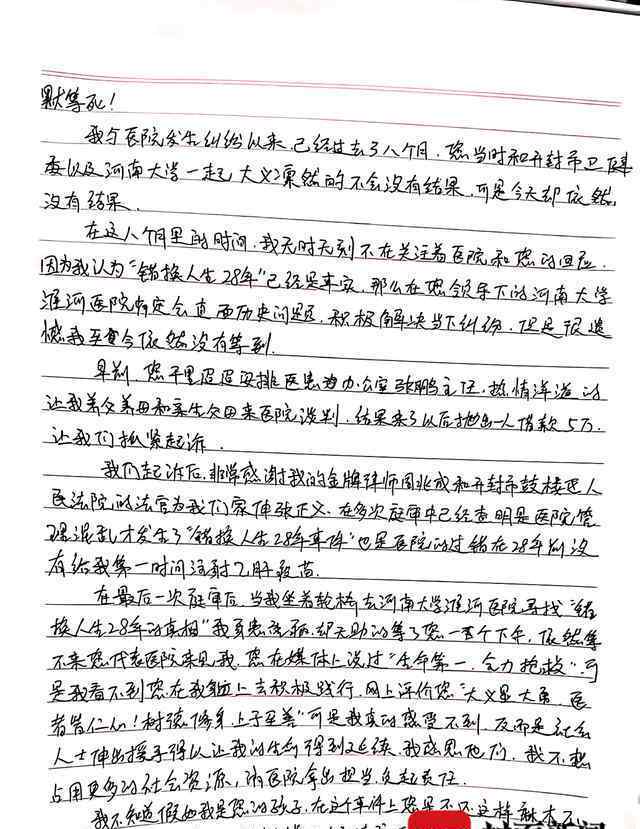 默等死！
我与医院发生纠纷以来，已经过去了八个月，您当时和开封市卫健
委以及河南大学一起大义凛然的不会没有结果，可是今天却依然
没有结果。
在这八个月里的时间，我无时无刻不在关注着医院和您的回应，
因为我认为“错换人生28年”已经是事实，那么在您领导下的河南大学
淮河医院肯定会直面历史问题，积极解决当下纠纷，但是很遗
憾我至今依然没有等到。
早前，您千里迢迢安排医患办公室张鹏主任，热情洋溢的
让我养父养母和亲生父母来医院谈判，结果来了以后抛出一人借款5万，
让我们抓紧起诉。
我们起诉后，非常感谢我的金牌律师周兆成和开封市鼓楼区人
民法院的法官为我们家伸张正义，在多次庭审中已经查明是医院管
理混乱才发生了“错换人生28年事件”也是医院的过错在28年前没
有给我第一时间注射乙肝疫苗。
在最后一次庭审后，当我坐着轮椅去河南大学淮河医院寻找“错
换人生28年的真相”我身患绝症，却无助的等了您一整个下午，依然等
不来您代表医院来见我，您在媒体上说过“生命第一，全力抢救”，可
是我看不到您在我身上去积极践行，网上评价您“大义显大勇，医
者皆仁心！树德修身上于至善”可是我真的感受不到，反而是社会
人士伸出援手得以让我的生命得到延续，我感恩他们，我不想
占用更多的社会资源，请医院拿出担当负起责任。
我不知道假如我是您的孩子，在这个事件上您是不是还这样麻木不